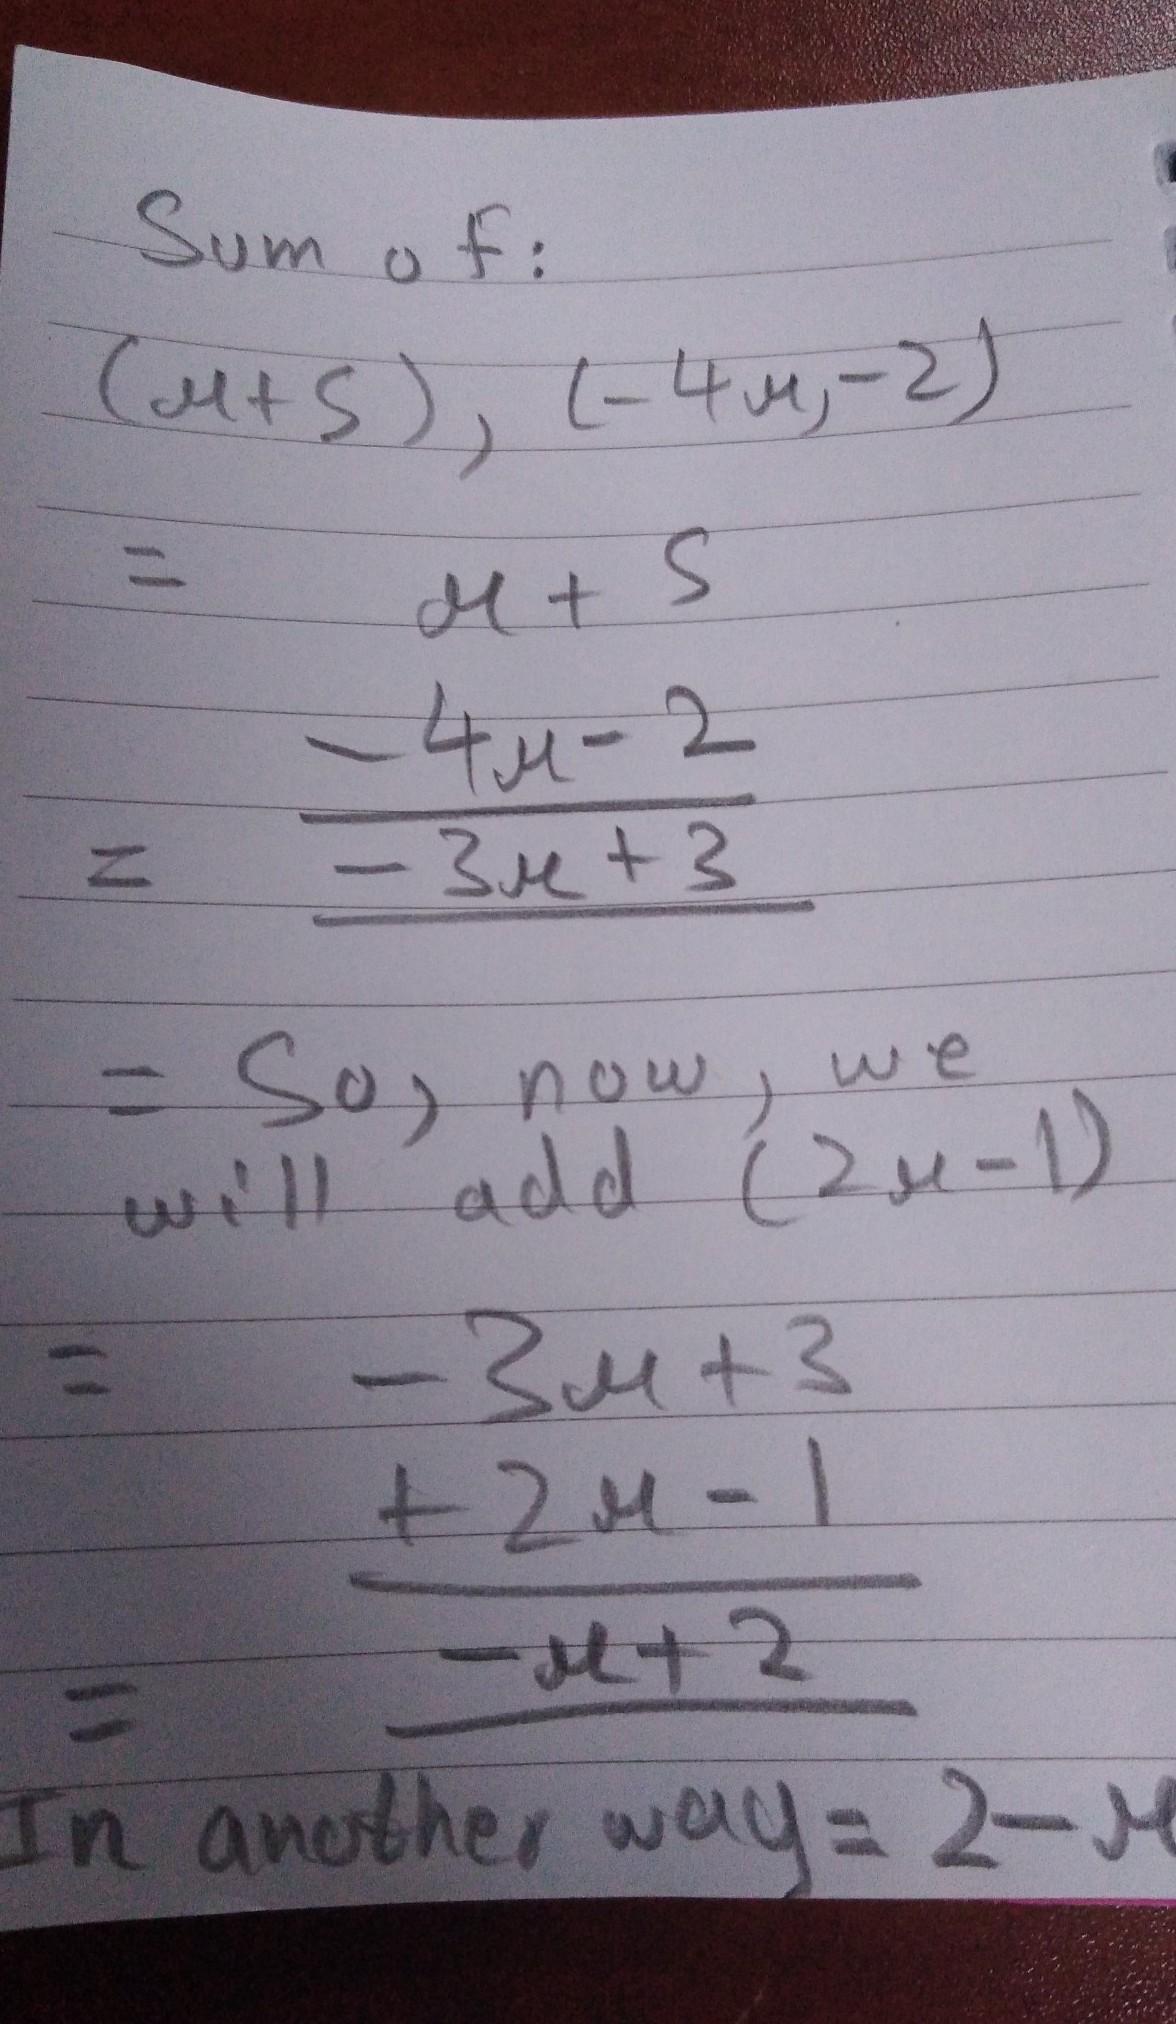 Sum of:
(x+5), (-4x,-2)
= x + 5
-4x-2
= -3x+3
= So, now, we
will add (2x-1)
= -3x+3
+2x-1
= -x+2
In another way= 2-x